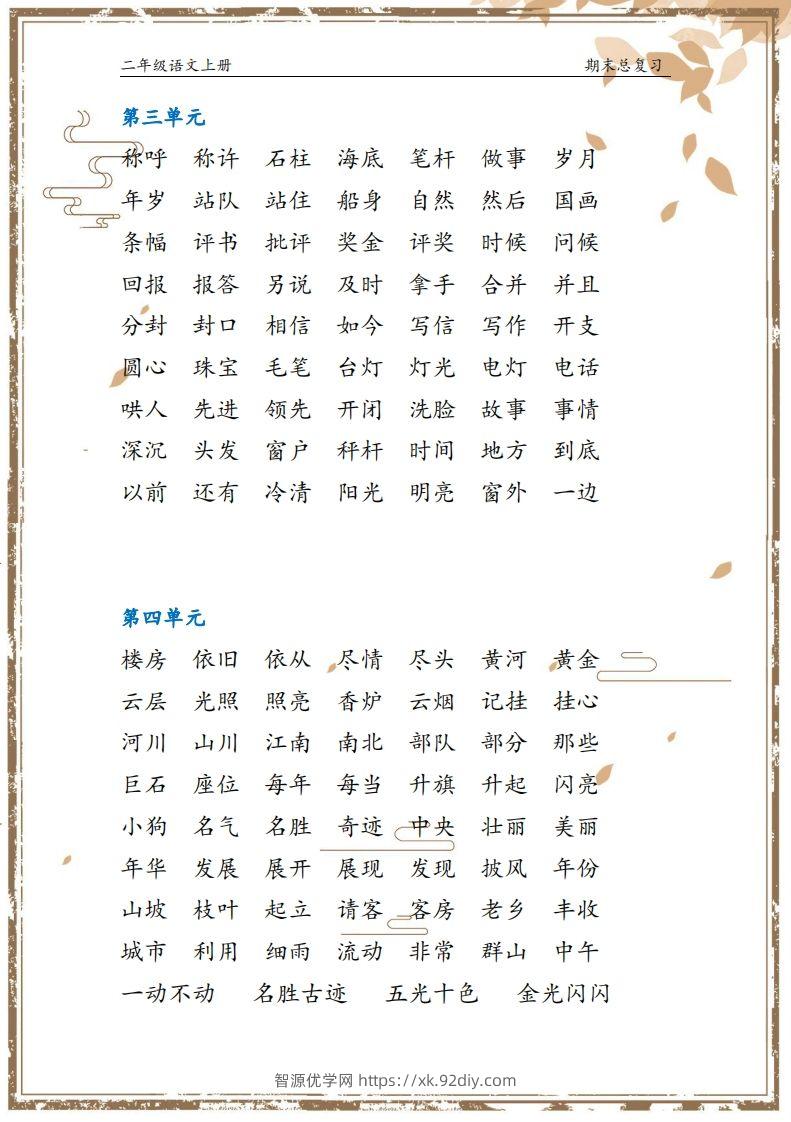 二年级语文上册 期末总复习
第三单元
称呼 称许 石柱 海底 笔杆 做事 岁月
年岁 站队 站住 船身 自然 然后 国画
条幅 评书 批评 奖金 评奖 时候 问候
回报 报答 另说 及时 拿手 合并 并且
分封 封口 相信 如今 写信 写作 开支
圆心 珠宝 毛笔 台灯 灯光 电灯 电话
哄人 先进 领先 开闭 洗脸 故事 事情
深沉 头发 窗户 秤杆 时间 地方 到底
以前 还有 冷清 阳光 明亮 窗外 一边
第四单元
楼房 依旧 依从 尽情 尽头 黄河 黄金
云层 光照 照亮 香炉 云烟 记挂 挂心
河川 山川 江南 南北 部队 部分 那些
巨石 座位 每年 每当 升旗 升起 闪亮
小狗 名气 名胜 奇迹 中央 壮丽 美丽
年华 发展 展开 展现 发现 披风 年份
山坡 枝叶 起立 请客 客房 老乡 丰收
城市 利用 细雨 流动 非常 群山 中午
一动不动 名胜古迹 五光十色 金光闪闪
智源优学网 https://xk.92diy.com